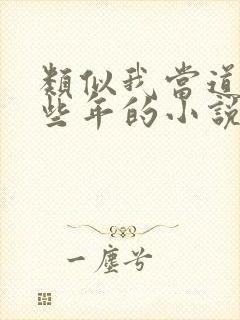 類似我當道
些年的小說
一塵兮